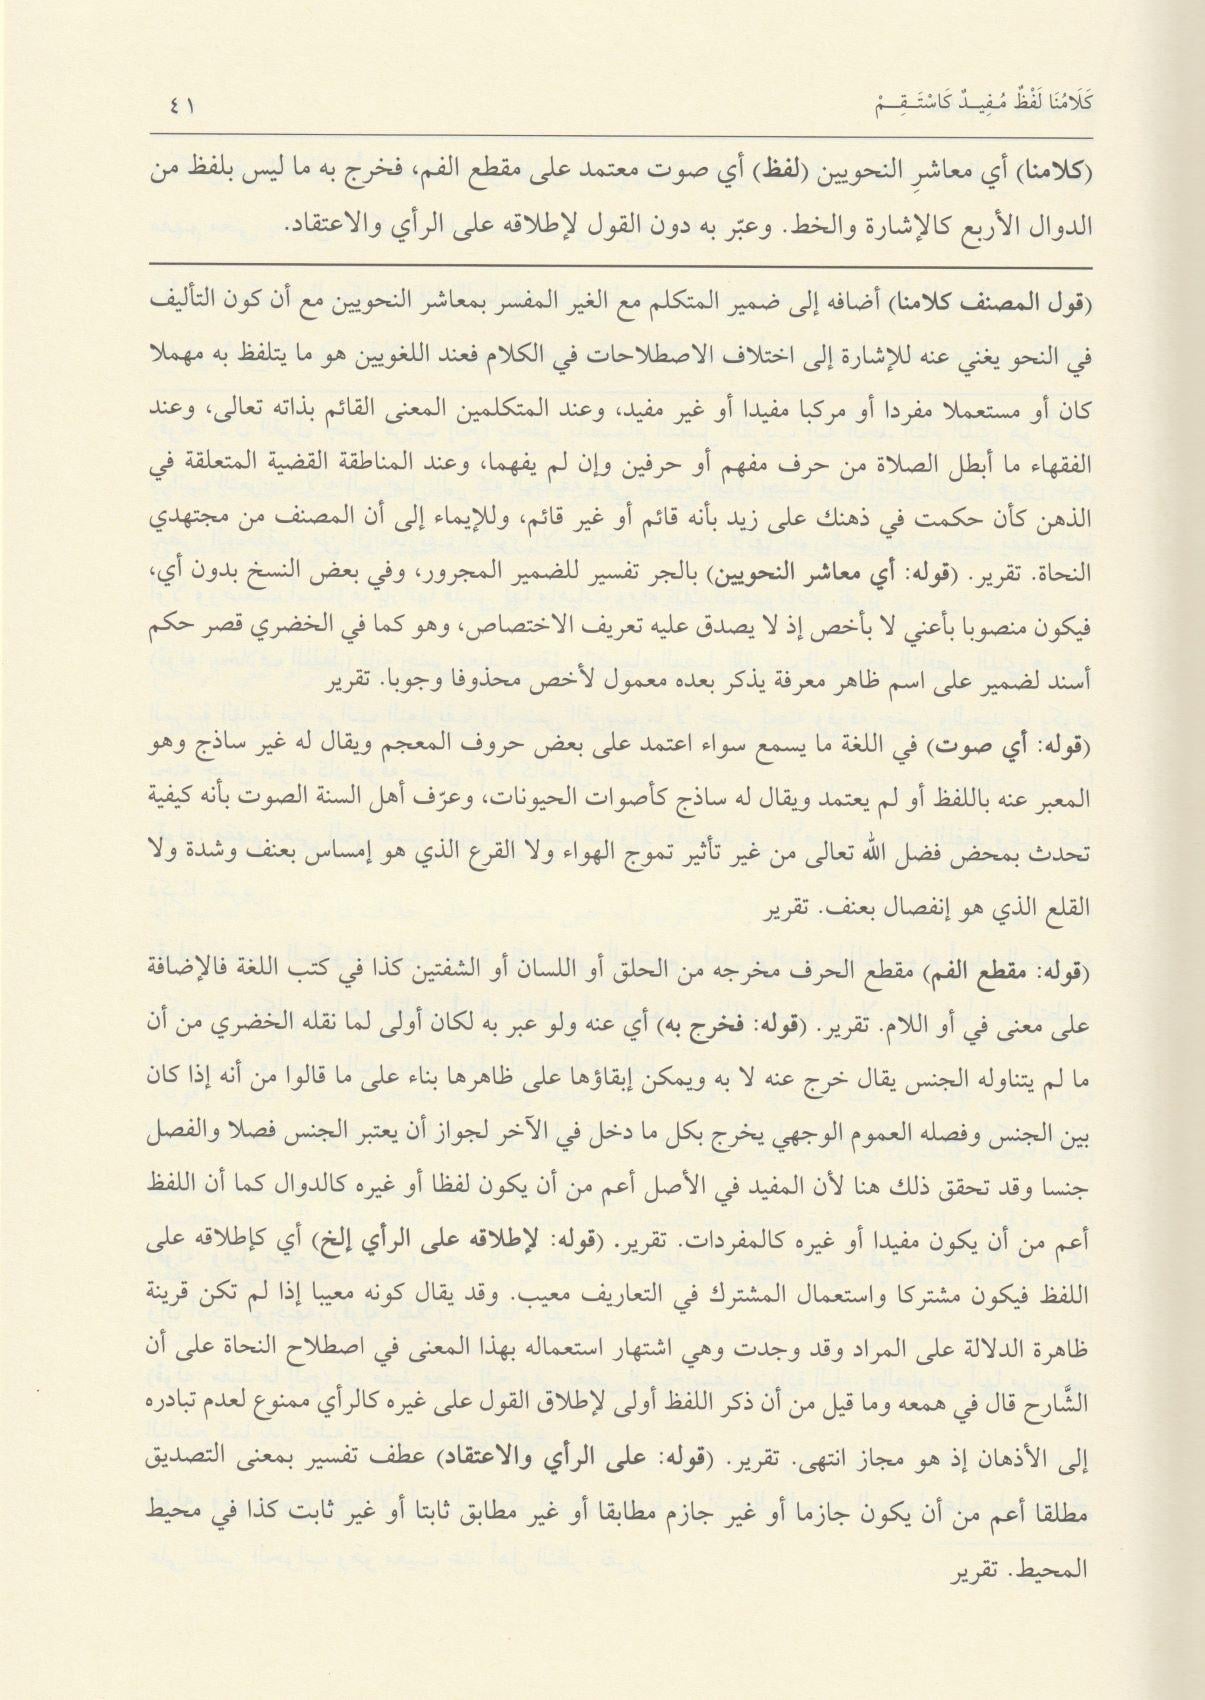 كَلَامُنَا لَفْظٌ مُـفِيـدٌ كَاسْتَـقِـمْ ٤١
(كلامنا) أي معاشرِ النحويين (لفظ) أي صوت معتمد على مقطع الفم، فخرج به ما ليس بلفظ من
الدوال الأربع كالإشارة والخط. وعبّر به دون القول لإطلاقه على الرأي والاعتقاد.
(قول المصنف كلامنا) أضافه إلى ضمير المتكلم مع الغير المفسر بمعاشر النحويين مع أن كون التأليف
في النحو يغني عنه للإشارة إلى اختلاف الاصطلاحات في الكلام فعند اللغويين هو ما يتلفظ به مهملا
كان أو مستعملا مفردا أو مركبا مفيدا أو غير مفيد، وعند المتكلمين المعنى القائم بذاته تعالى، وعند
الفقهاء ما أبطل الصلاة من حرف مفهم أو حرفين وإن لم يفهما، وعند المناطقة القضية المتعلقة في
الذهن كأن حكمت في ذهنك على زيد بأنه قائم أو غير قائم، وللإيماء إلى أن المصنف من مجتهدي
النحاة. تقرير. (قوله: أي معاشر النحويين) بالجر تفسير للضمير المجرور، وفي بعض النسخ بدون أي،
فيكون منصوبا بأعني لا بأخص إذ لا يصدق عليه تعريف الاختصاص، وهو كما في الخضري قصر حكم
أسند لضمير على اسم ظاهر معرفة يذكر بعده معمول لأخص محذوفا وجوبا. تقرير
(قوله: أي صوت) في اللغة ما يسمع سواء اعتمد على بعض حروف المعجم ويقال له غير ساذج وهو
المعبر عنه باللفظ أو لم يعتمد ويقال له ساذج كأصوات الحيونات، وعرّف أهل السنة الصوت بأنه كيفية
تحدث بمحض فضل الله تعالى من غير تأثير تموج الهواء ولا القرع الذي هو إمساس بعنف وشدة ولا
القلع الذي هو إنفصال بعنف. تقرير
(قوله: مقطع الفم) مقطع الحرف مخرجه من الحلق أو اللسان أو الشفتين كذا في كتب اللغة فالإضافة
على معنى في أو اللام. تقرير. (قوله: فخرج به) أي عنه ولو عبر به لكان أولى لما نقله الخضري من أن
ما لم يتناوله الجنس يقال خرج عنه لا به ويمكن إبقاؤها على ظاهرها بناء على ما قالوا من أنه إذا كان
بين الجنس وفصله العموم الوجهي يخرج بكل ما دخل في الآخر لجواز أن يعتبر الجنس فصلا والفصل
جنسا وقد تحقق ذلك هنا لأن المفيد في الأصل أعم من أن يكون لفظا أو غيره كالدوال كما أن اللفظ
أعم من أن يكون مفيدا أو غيره كالمفردات. تقرير. (قوله: لإطلاقه على الرأي إلخ) أي كإطلاقه على
اللفظ فيكون مشتركا واستعمال المشترك في التعاريف معيب. وقد يقال كونه معيبا إذا لم تكن قرينة
ظاهرة الدلالة على المراد وقد وجدت وهي اشتهار استعماله بهذا المعنى في اصطلاح النحاة على أن
الشَّارح قال في همعه وما قيل من أن ذكر اللفظ أولى لإطلاق القول على غيره كالرأي ممنوع لعدم تبادره
إلى الأذهان إذ هو مجاز انتهى. تقرير. (قوله: على الرأي والاعتقاد) عطف تفسير بمعنى التصديق
مطلقا أعم من أن يكون جازما أو غير جازم مطابقا أو غير مطابق ثابتا أو غير ثابت كذا في محيط
المحيط. تقرير